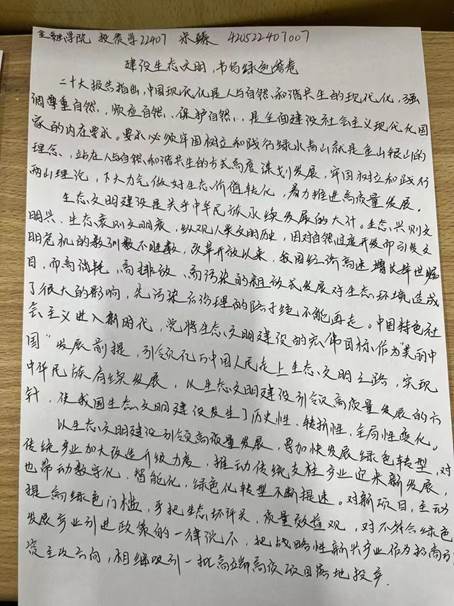 金融学院 投资学22407 宋臻 420522407007
建设生态文明,书写绿色答卷
二十大报告指出,中国现代化是人与自然和谐共生的现代化,强
调尊重自然、顺应自然、保护自然,是全面建设社会主义现代化国
家的内在要求。要求必须牢固树立和践行绿水青山就是金山银山的
理念,站在人与自然和谐共生的高度谋划发展,牢固树立和践行
两山理论,下大力气做好生态价值转化,着力推进高质量发展。
生态文明建设是关乎中华民族永续发展的大计。生态兴则文
明兴,生态衰则文明衰,纵观人类文明历史,因对自然过度开发而引发文
明危机的教训数不胜数,改革开放以来,我国经济高速增长举世瞩
目,而高消耗、高排放、高污染的粗放式发展对生态环境造成
了很大的影响,先污染后治理的路子绝不能再走。中国特色社
会主义进入新时代,党将生态文明建设的宏伟目标作为“美丽中
国”发展前提,引领亿万中国人民走上生态文明之路,实现
中华民族后续发展,以生态文明建设引领高质量发展的方
针,使我国生态文明建设发生了历史性、转折性、全局性变化。
以生态文明建设引领高质量发展,要加快发展绿色转型,对
传统产业加大改造升级力度,推动传统支柱产业迎来新发展,
也带动数字化、智能化、绿色化转型不断提速。对新项目,主动
提高绿色门槛,手把生态环评关,质量效益观,对不符合绿色
发展产业引进政策的一律说不,把战略性新兴产业作为招商引
资主攻方向,相继吸引一批高端高效项目落地投产。